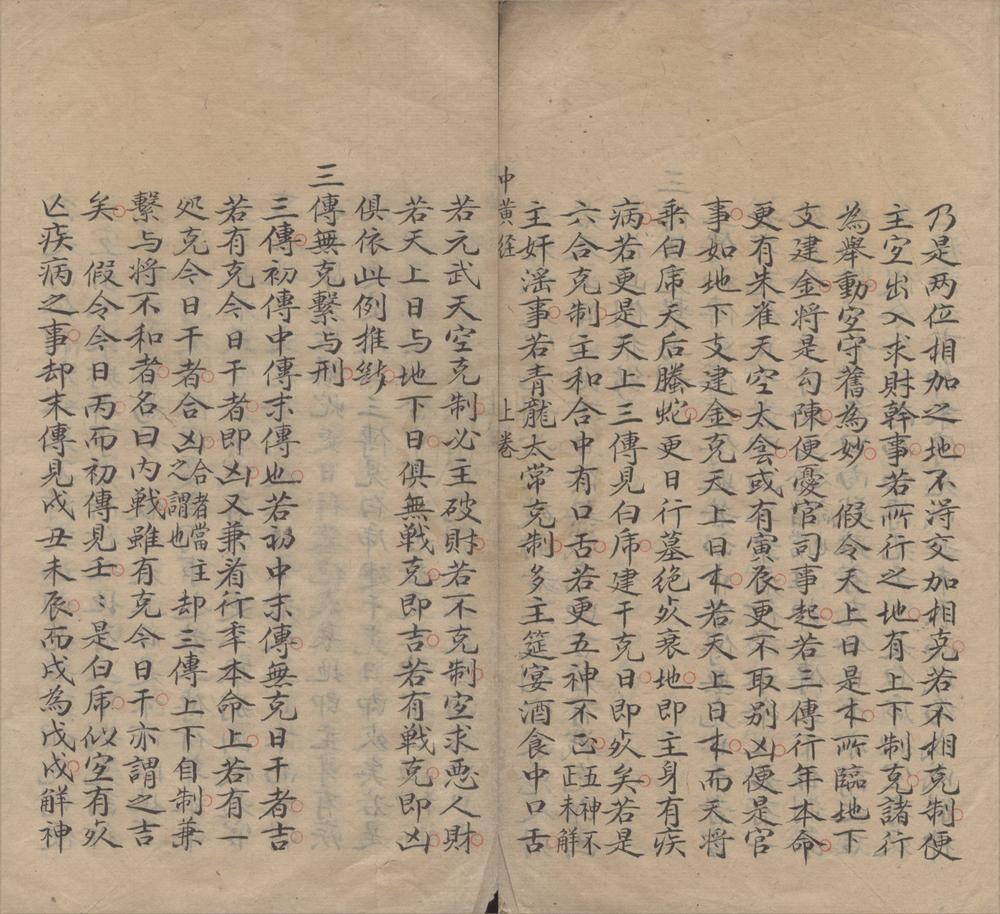 乃是两位相加之地不淂交加相克若不相克制便
主空出入求財幹事若所行之地有上下制克諸行
為舉動空守舊為妙　假令天上日是木所臨地下
支建金將是勾陳便憂官司事起若三傳行年本命
更有朱雀天空太陰或有寅辰更不取別凶便是官
事如地下支建金克天上日木若天上日木而天將
乘白虎天后螣蛇更日行墓绝死衰地即主身有疾
病若更是天上三傳見白虎建干克日即死矣若是
六合克制主和合中有口舌若更五神不正五神不正未解
主奸滛事若青龍太常克制多主筵宴酒食中口舌
中黄经　上卷
若元武天空克制必主破財若不克制空求恶人財
若天上日与地下日俱無戰克即吉若有戰克即凶
俱依此例推斷
三傳無克繫与刑
三傳初傳中傳末傳也若初中末傳無克日干者吉
若有克今日干者即凶又兼看行年本命上若有一
処克今日干者合凶合者當之謂也注却三傳上下自制兼
繫与將不和者名曰内戰雖有克今日干亦謂之吉
矣　假令今日丙而初傳見壬〻是白虎似空有死
亾疾病之事却末傳見戌丑未辰而戌為戊戌解神